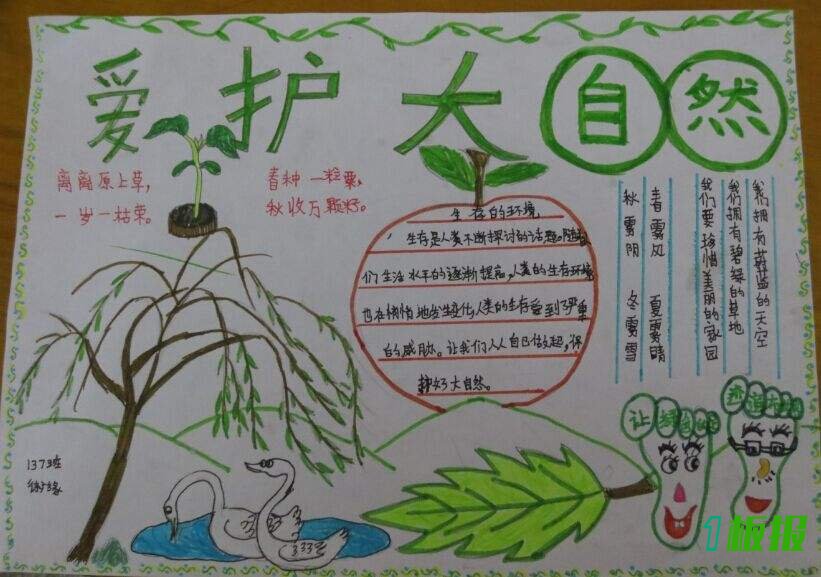 爱护大自然
离离原上草，
一岁一枯荣。
春种一粒粟，
秋收万颗籽。
生存的环境
生存是人类不断探讨的话题。随着
们生活水平的逐渐提高，人类的生存环境
也在悄悄地发生变化，人类的生存受到了严重
的威胁。让我们人人自己做起，保
护好大自然。
我们拥有蔚蓝的天空
我们拥有碧绿的草地
我们要珍惜美丽的家园
春雾风 夏雾晴
秋雾阴 冬雾雪
让绿色
137班
1板报